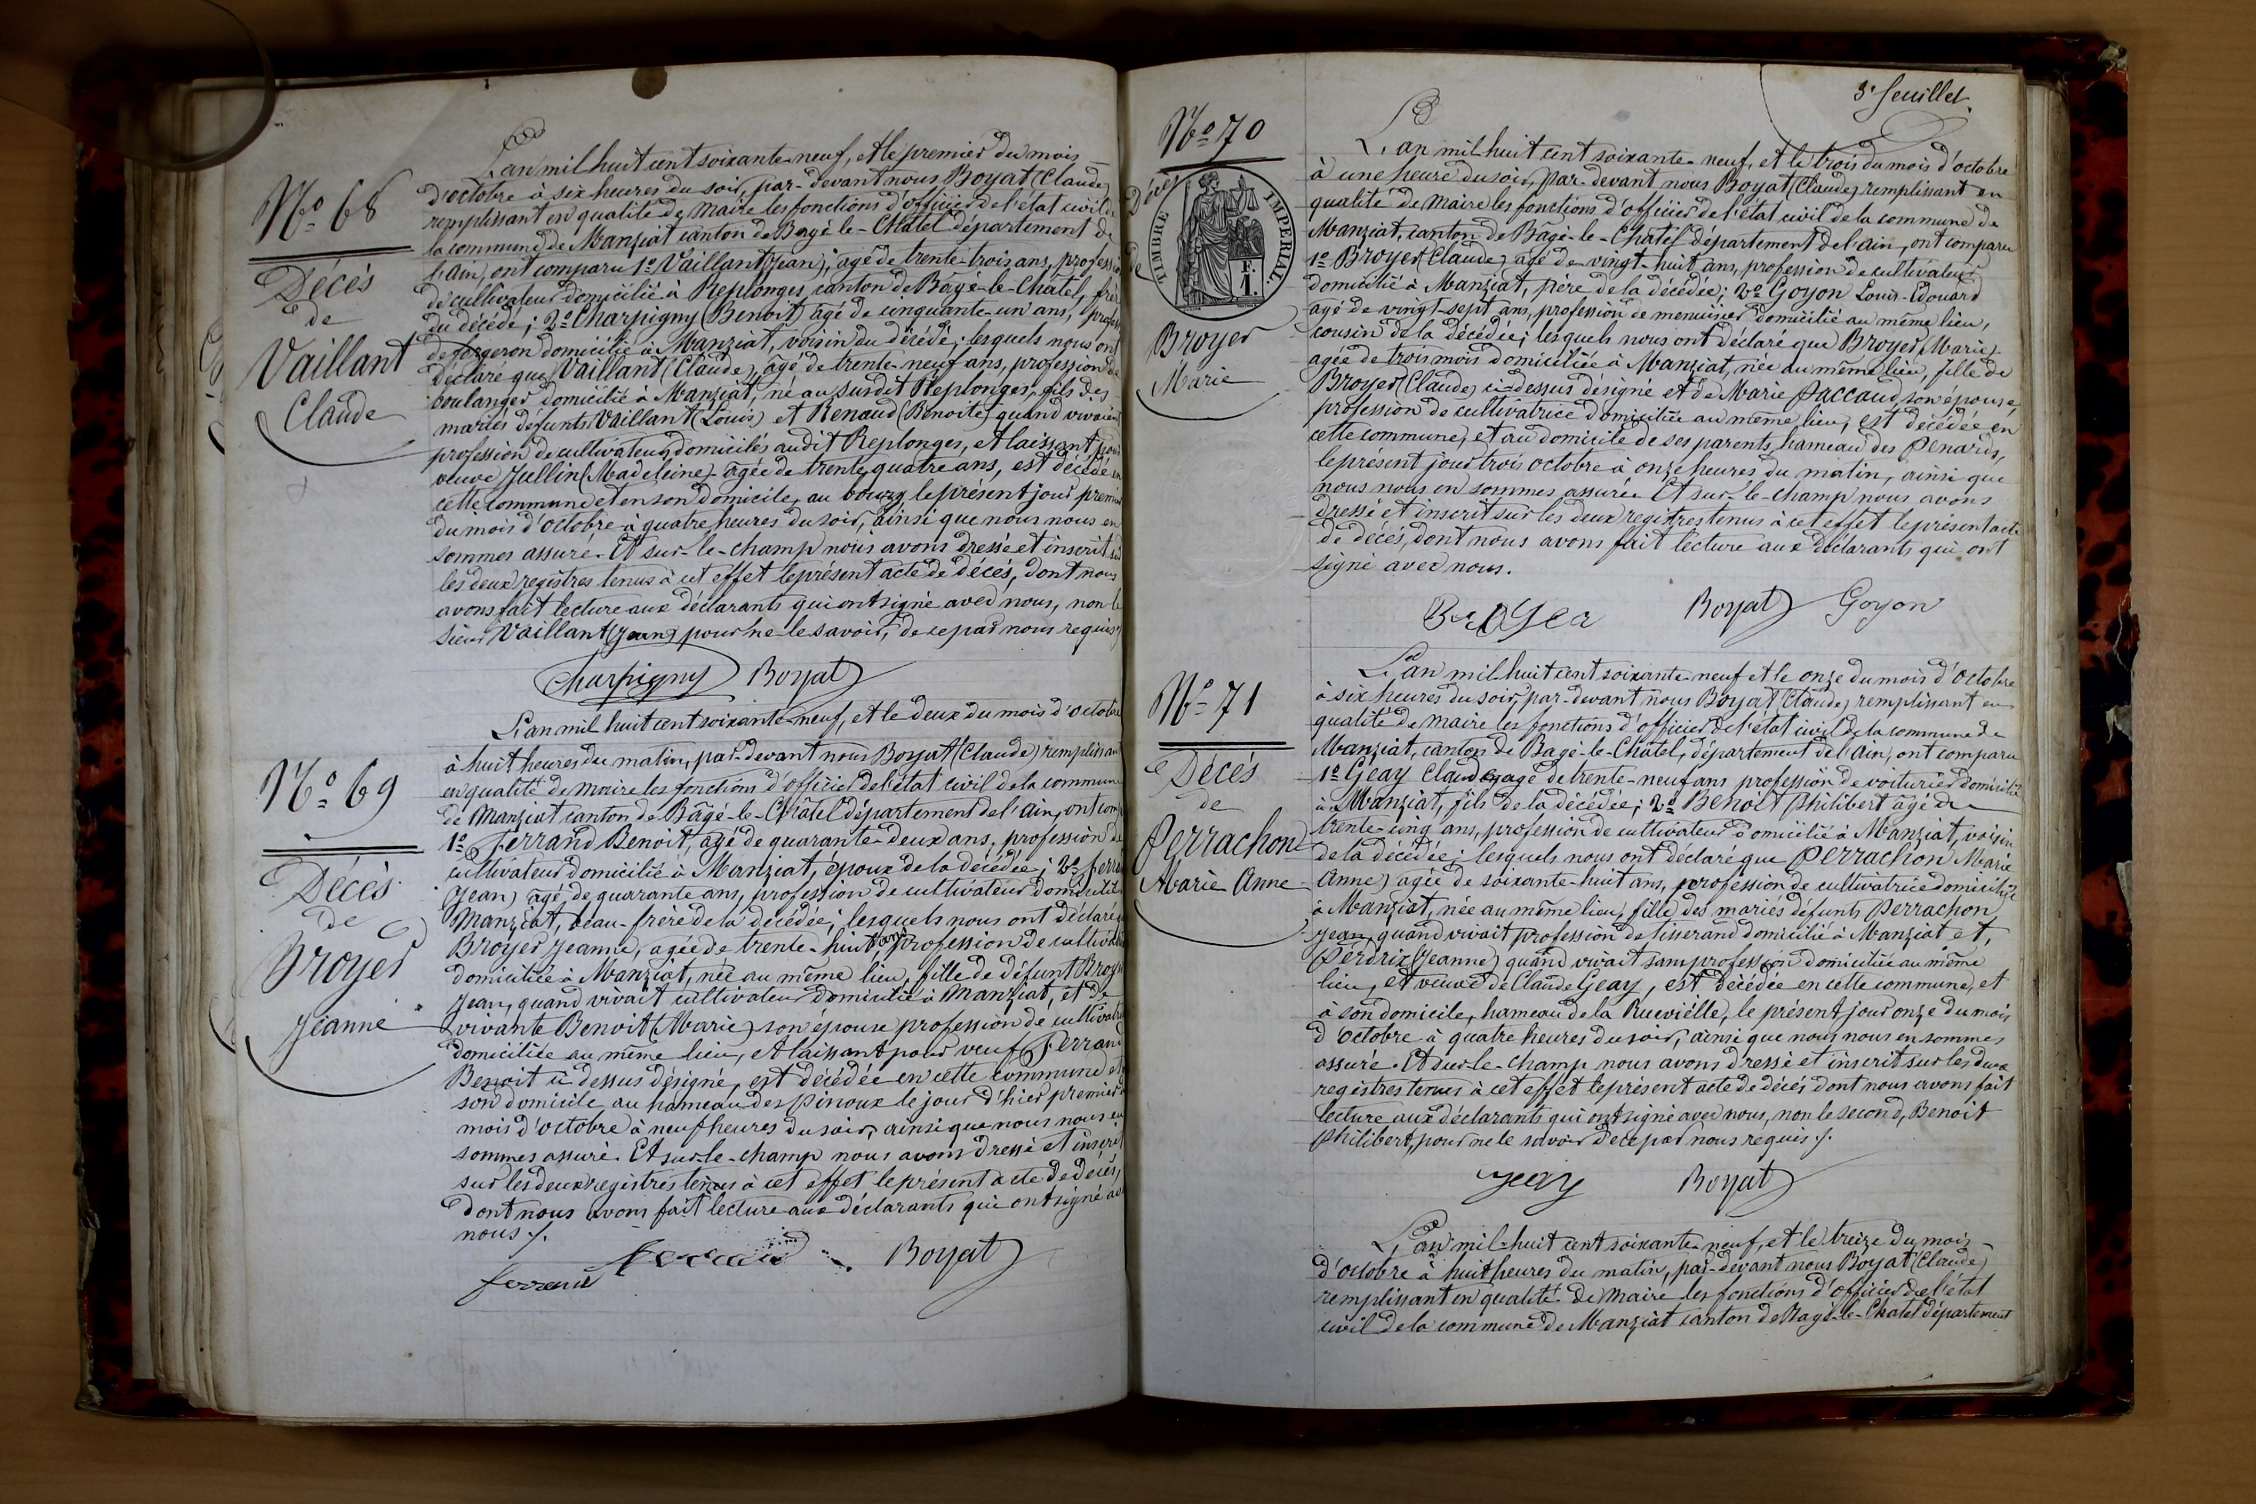 No 68
Décès
de
Vaillant
Claude
L'an mil huit cent soixante-neuf, et le premier du mois
d'octobre à six heures du soir, par-devant nous Boyat (Claude)
remplissant en qualité de Maire les fonctions d'officier de l'état civil de
la commune de Manziat canton de Bagé-le-Châtel département de
l'ain, ont comparu 1o Vaillant (Jean), agé de trente-trois ans, profession
de cultivateur domicilié à Replonges canton de Bâgé-le-Châtel, frère
du décédé; 2o Charpigny (Benoit) âgé de cinquante-un ans, profession
de forgeron domicilié à Manziat, voisin du décédé; lesquels nous ont
déclaré que Vaillant (Claude), âgé de trente-neuf ans, profession de
boulanger domicilié à Manziat, né au susdit Replonges, fils des
mariés défunts Vaillant (Louis) et Renaud (Benoite) quand vivaient
profession de cultivateurs domiciliés audit Replonges, et laissant pour
veuve Jullin (Madeleine) agée de trente quatre ans, est décédé en
cette commune et en son domicile, au bourg le présent jour premier
du mois d'octobre à quatre heures du soir, ainsi que nous nous en
sommes assuré. Et sur-le-champ nous avons dressé et inscrit sur
les deux registres tenus à cet effet le présent acte de décès, dont nous
avons fait lecture aux déclarants qui ont signé avec nous, non le
sieur Vaillant (Jean) pour ne le savoir, de ce par nous requis ./.
Charpigny Boyat
No 69
Décès
de
Broyer
Jeanne
L'an mil huit cent soixante-neuf, et le deux du mois d'octobre
à huit heures du matin, par-devant nous Boyat (Claude) remplissant
en qualité de maire les fonctions d'officier de l'état civil de la commune
de Manziat canton de Bâgé-le-Châtel département de l'ain, ont com
1o Ferrand Benoit, âgé de quarante-deux ans, profession de
cultivateur domicilié à Manziat, époux de la décédée; 2o Ferra
(Jean) âgé de quarante ans, profession de cultivateur domicilié
Manziat, beau-frère de la décédée; lesquels nous ont déclaré
Broyer Jeanne, agée de trente-huit ans, profession de cultivat
domiciliée à Manziat, née au même lieu, fille de défunt Broyer
Jean, quand vivait cultivateur domicilié à Manziat, et de
vivante Benoit (Marie) son épouse profession de cultivatrice
domiciliée au même lieu, et laissant pour veuf Ferrand
Benoit ci-dessus désigné, est décédée en cette commune et
son domicile, au hameau des Pinoux le jour d'hier premier
mois d'octobre à neuf heures du soir, ainsi que nous nous en
sommes assuré. Et sur-le-champ nous avons dressé et inscrit
sur les deux registres tenus à cet effet le présent acte de décès,
dont nous avons fait lecture aux déclarants qui ont signé av
nous ./.
ferrand ferrand Boyat
3e feuillet.
No 70
Décès
de
TIMBRE IMPERIAL
1 F.
Broyer
Marie
L'an mil huit cent soixante-neuf, et le trois du mois d'octobre
à une heure du soir, par-devant nous Boyat (Claude) remplissant en
qualité de Maire les fonctions d'officier de l'état civil de la commune de
Manziat, canton de Bagé-le-Châtel département de l'ain, ont comparu
1o Broyer (Claude) agé de vingt-huit ans, profession de cultivateur
domicilié à Manziat, père de la décédée; 2o Goyon Louis-Edouard
agé de vingt-sept ans, profession de menuisier domicilié au même lieu,
cousin de la décédée; lesquels nous ont déclaré que Broyer (Marie)
agée de trois mois domiciliée à Manziat, née au même lieu, fille de
Broyer (Claude) ci-dessus désigné et de Marie Paccaud son épouse,
profession de cultivatrice domiciliée au même lieu, est décédée en
cette commune, et au domicile de ses parents, hameau des Penards,
le présent jour trois octobre à onze heures du matin, ainsi que
nous nous en sommes assuré. Et sur-le-champ nous avons
dressé et inscrit sur les deux registres tenus à cet effet le présent acte
de décès, dont nous avons fait lecture aux déclarants qui ont
signé avec nous.
BROYer Boyat Goyon
No 71
Décès
de
Perrachon
Marie Anne
L'an mil huit cent soixante-neuf et le onze du mois d'octobre
à six heures du soir, par-devant nous Boyat (Claude) remplissant en
qualité de Maire les fonctions d'officier de l'état civil de la commune de
Manziat, canton de Bagé-le-Châtel, département de l'Ain, ont comparu
1o Geay Claude agé de trente-neuf ans profession de voiturier domicilié
à Manziat, fils de la décédée; 2o Benoit Philibert âgé de
trente-cinq ans, profession de cultivateur domicilié à Manziat, voisin
de la décédée; lesquels nous ont déclaré que Perrachon Marie
Anne) agée de soixante-huit ans, profession de cultivatrice domiciliée
à Manziat, née au même lieu, fille des mariés défunts Perrachon
Jean quand vivait profession de tisserand domicilié à Manziat et,
Perdrix (Jeanne) quand vivait sans profession domiciliée au même
lieu, et veuve de Claude Geay, est décédée en cette commune, et
à son domicile, hameau de la Ruevielle, le présent jour onze du mois
d'octobre à quatre heures du soir, ainsi que nous nous en sommes
assuré. Et sur-le-champ nous avons dressé et inscrit sur les deux
registres tenus à cet effet le présent acte de décès dont nous avons fait
lecture aux déclarants qui ont signé avec nous, non le second, Benoit
Philibert, pour ne le savoir de ce par nous requis ./.
geay Boyat
L'an mil-huit cent soixante-neuf, et le treize du mois
d'octobre à huit heures du matin, par-devant nous Boyat (Claude)
remplissant en qualité de Maire les fonctions d'officier de l'état
civil de la commune de Manziat canton de Bagé-le-Chatel département